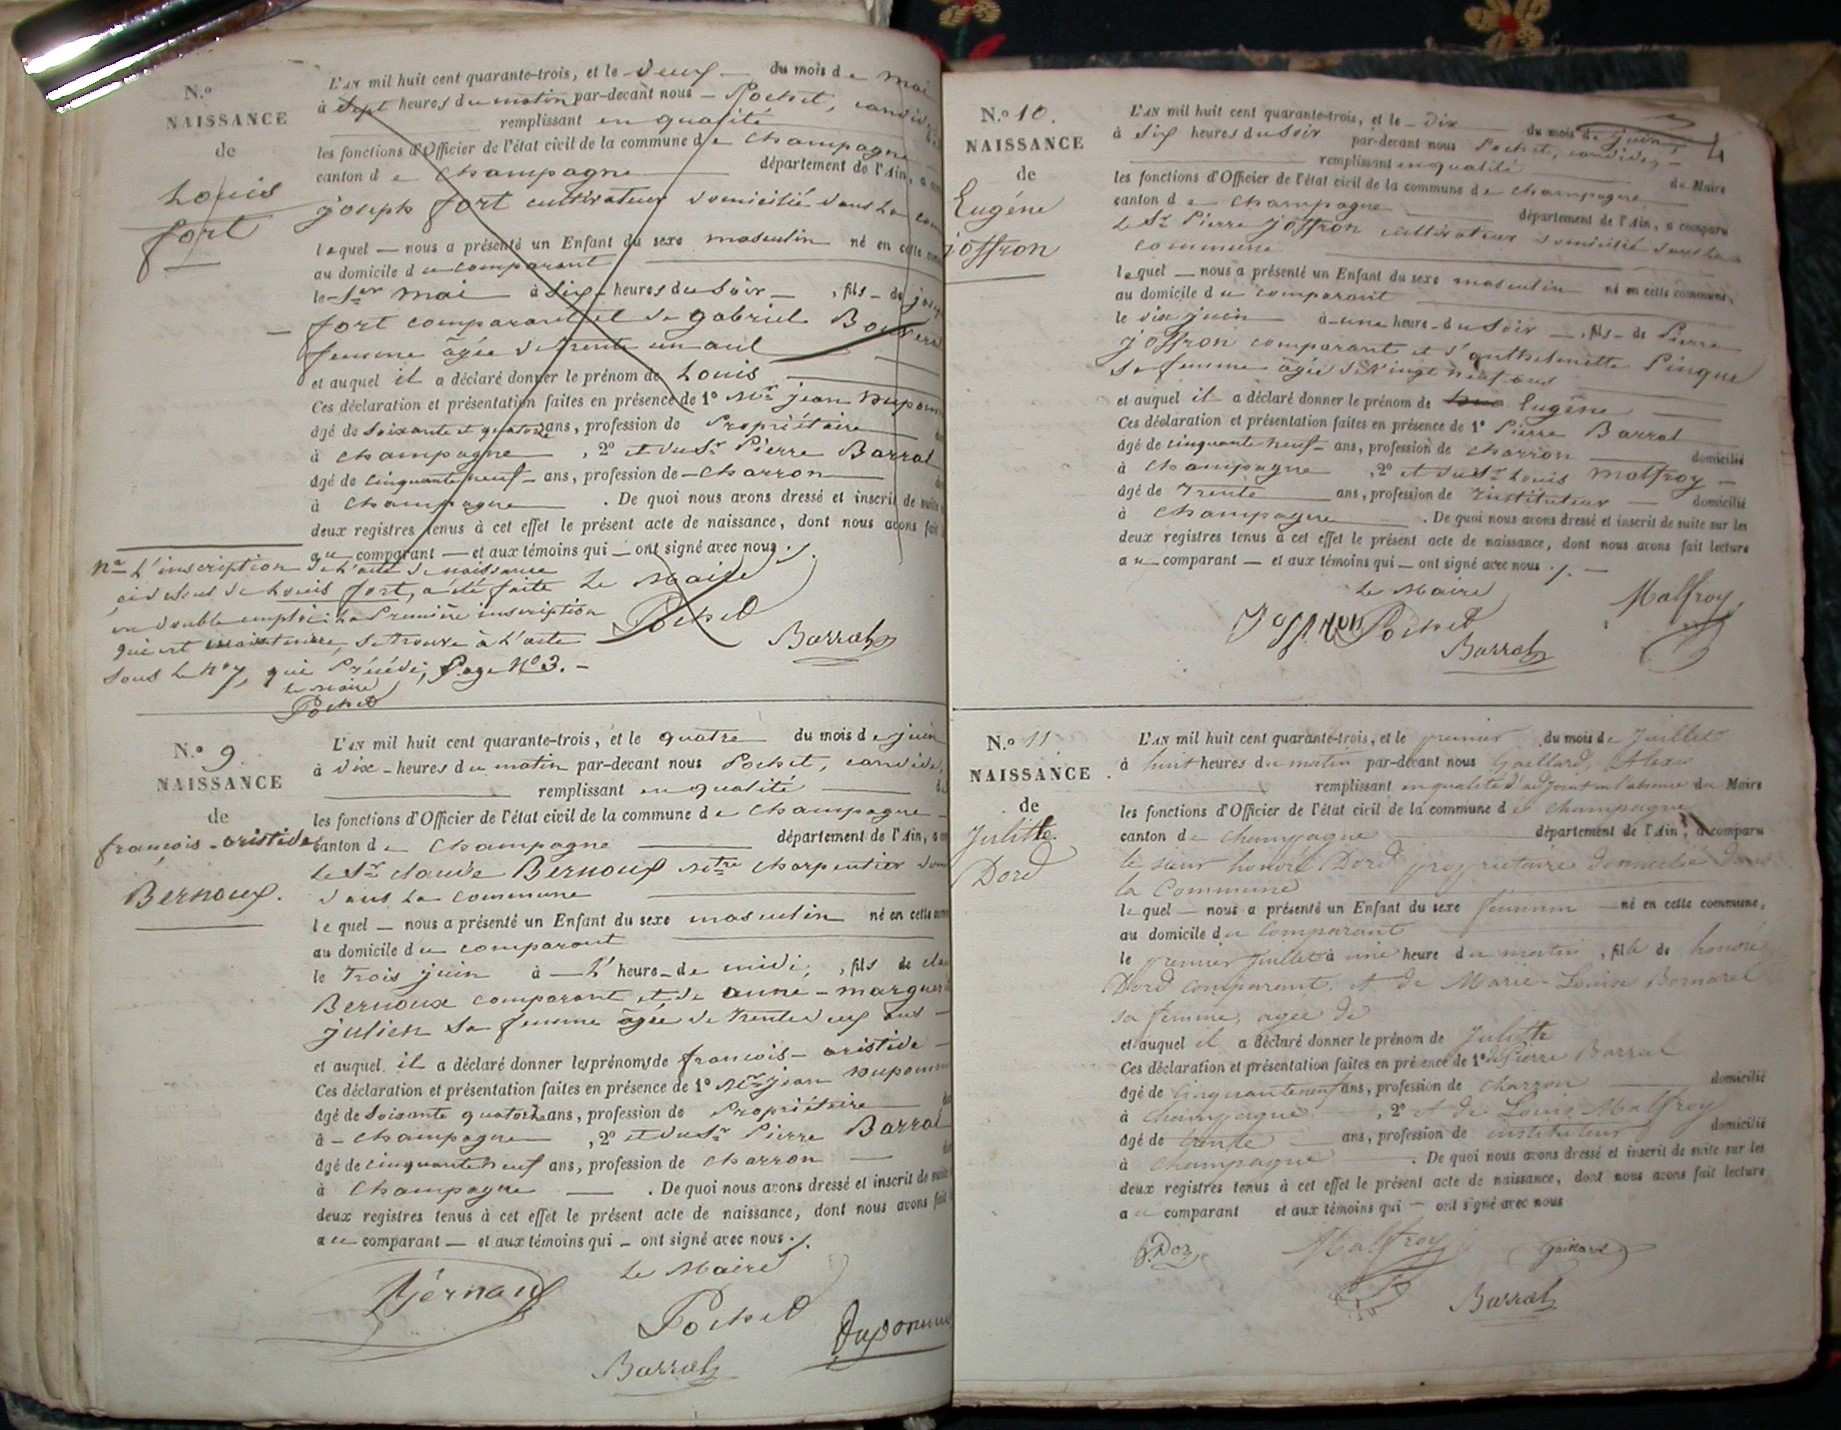 N.o
NAISSANCE
de
Louis
fort
L'AN mil huit cent quarante-trois, et le deux du mois de mai
à sept heures du matin par-devant nous Pochet, candide
remplissant en qualité
les fonctions d'Officier de l'état civil de la commune de Champagne
canton de Champagne département de l'Ain, a
joseph fort cultivateur domicilié dans la com
lequel nous a présenté un Enfant du sexe masculin né en cette
au domicile du comparant
le 1er mai à six heures du soir, fils de
fort comparant et de gabriel
femme âgée de trente un ans
et auquel il a déclaré donner le prénom de Louis
Ces déclaration et présentation faites en présence de 1o Mr jean Dupom
âgé de soixante et quatorze ans, profession de Propriétaire
à Champagne, 2o et du Sr Pierre Barral
âgé de cinquante neuf ans, profession de charron
à Champagne. De quoi nous avons dressé et inscrit de suite
deux registres tenus à cet effet le présent acte de naissance, dont nous avons fait
au comparant et aux témoins qui ont signé avec nous ./.
Le Maire
Pochet
Barral
Na L'inscription de l'acte de naissance
ci dessus de Louis fort, a été faite
en double emploi: La Première inscription
qui est maintenue, se trouve à l'acte
sous le No 7, qui Précède, Page No 3.
le Maire
Pochet
N.o 9
NAISSANCE
de
françois-aristide
Bernoux.
L'AN mil huit cent quarante-trois, et le quatre du mois de juin
à dix heures du matin par-devant nous Pochet, candide,
remplissant en qualité
les fonctions d'Officier de l'état civil de la commune de Champagne
canton de Champagne département de l'Ain, a
le Sr claude Bernoux Mtre charpentier
dans la commune
lequel nous a présenté un Enfant du sexe masculin né en cette
au domicile du comparant
le trois juin à L'heure de midi, fils de
Bernoux comparant et de anne-marguer
julien sa femme âgée de trente deux ans
et auquel il a déclaré donner les prénoms de francois-aristide
Ces déclaration et présentation faites en présence de 1o Mr jean Dupom
âgé de soixante quatorze ans, profession de Propriétaire
à Champagne, 2o et du Sr Pierre Barral
âgé de cinquante neuf ans, profession de charron
à Champagne. De quoi nous avons dressé et inscrit de suite
deux registres tenus à cet effet le présent acte de naissance, dont nous avons fait
au comparant et aux témoins qui ont signé avec nous ./.
Le Maire
Pochet
Barral
N.o 10.
NAISSANCE
de
Eugéne
joffron
4
L'AN mil huit cent quarante-trois, et le dix du mois de juin
à six heures du soir par-devant nous Pochet, candide,
remplissant en qualité du Maire
les fonctions d'Officier de l'état civil de la commune de Champagne
canton de Champagne département de l'Ain, a comparu
le Sr Pierre joffron cultivateur domicilié dans la
commune
lequel nous a présenté un Enfant du sexe masculin né en cette commune,
au domicile du comparant
le dix juin à une heure du soir, fils de Pierre
joffron comparant et d'anthelmette Pingue
sa femme âgée de vingt neuf ans
et auquel il a déclaré donner le prénom de Eugéne
Ces déclaration et présentation faites en présence de 1o Pierre Barral
âgé de cinquante neuf ans, profession de charron domicilié
à Champagne, 2o et du Sr Louis Malfroy
âgé de trente ans, profession de Instituteur domicilié
à Champagne. De quoi nous avons dressé et inscrit de suite sur les
deux registres tenus à cet effet le présent acte de naissance, dont nous avons fait lecture
au comparant et aux témoins qui ont signé avec nous ./.
Le Maire
Joffron Pochet
Barral
Malfroy
N.o 11
NAISSANCE
de
Julitte
Dord
L'AN mil huit cent quarante-trois, et le premier du mois de Juillet
à huit heures du matin par-devant nous Gaillard, Alex
remplissant en qualité d'adjoint en l'absence du Maire
les fonctions d'Officier de l'état civil de la commune de Champagne
canton de Champagne département de l'Ain, a comparu
le sieur honoré Dord proprietaire domicilié dans
la Commune
lequel nous a présenté un Enfant du sexe féminin né en cette commune,
au domicile du comparant
le premier Juillet à une heure du matin, fille de honoré
Dord comparant, et de Marie-Louise
sa femme, agée de
et auquel il a déclaré donner le prénom de Julitte
Ces déclaration et présentation faites en présence de 1o Pierre Barral
âgé de cinquanteneuf ans, profession de charron domicilié
à Champagne, 2o et de Louis Malfroy
âgé de trente ans, profession de instituteur domicilié
à Champagne. De quoi nous avons dressé et inscrit de suite sur les
deux registres tenus à cet effet le présent acte de naissance, dont nous avons fait lecture
au comparant et aux témoins qui ont signé avec nous
Malfroy
Gaillard
Barral